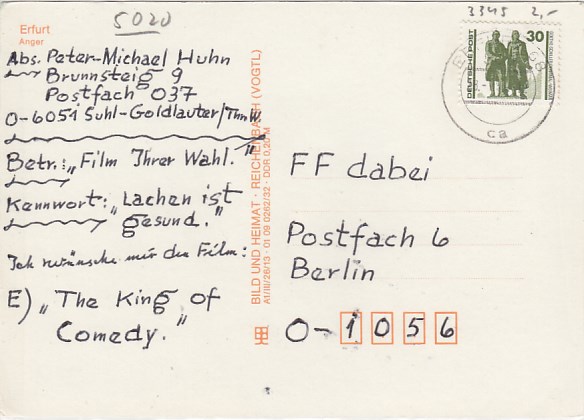 5020
3345 2,-
Erfurt
Anger
Abs. Peter-Michael Huhn
Brunnsteig 9
Postfach 037
O-6051 Suhl-Goldlauter/ThW.
Betr.: „Film Ihrer Wahl."
Kennwort: „Lachen ist
gesund."
Ich wünsche mir den Film:
E) „The King of
Comedy."
BILD UND HEIMAT · REICHENBACH (VOGTL)
A1/III/26/13 · 01 09 0262/32 · DDR 0,20 M
DEUTSCHE POST
30
ca
FF dabei
Postfach 6
Berlin
O-1056